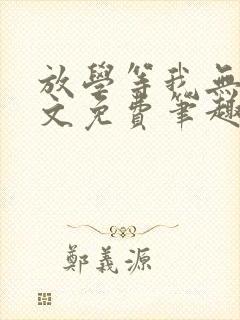 放學等我無
文免費筆趣
鄭義源